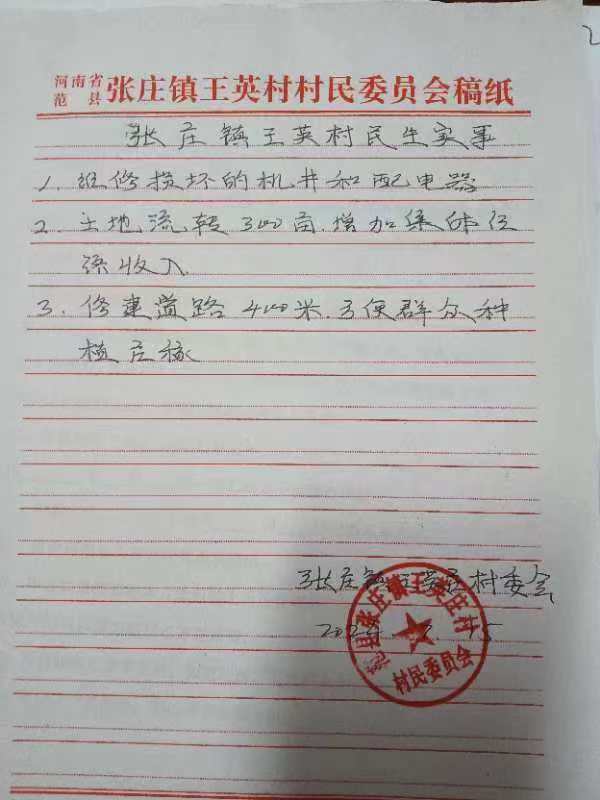 河南省
范县
张庄镇王英村村民委员会稿纸
张庄镇王英村民生实事
1. 维修损坏的机井和配电器
2. 土地流转300亩.增加集体经
济收入
3. 修建道路400米.方便群众种
植庄稼
张庄镇王英庄村委会
范县张庄镇王英庄村
村民委员会